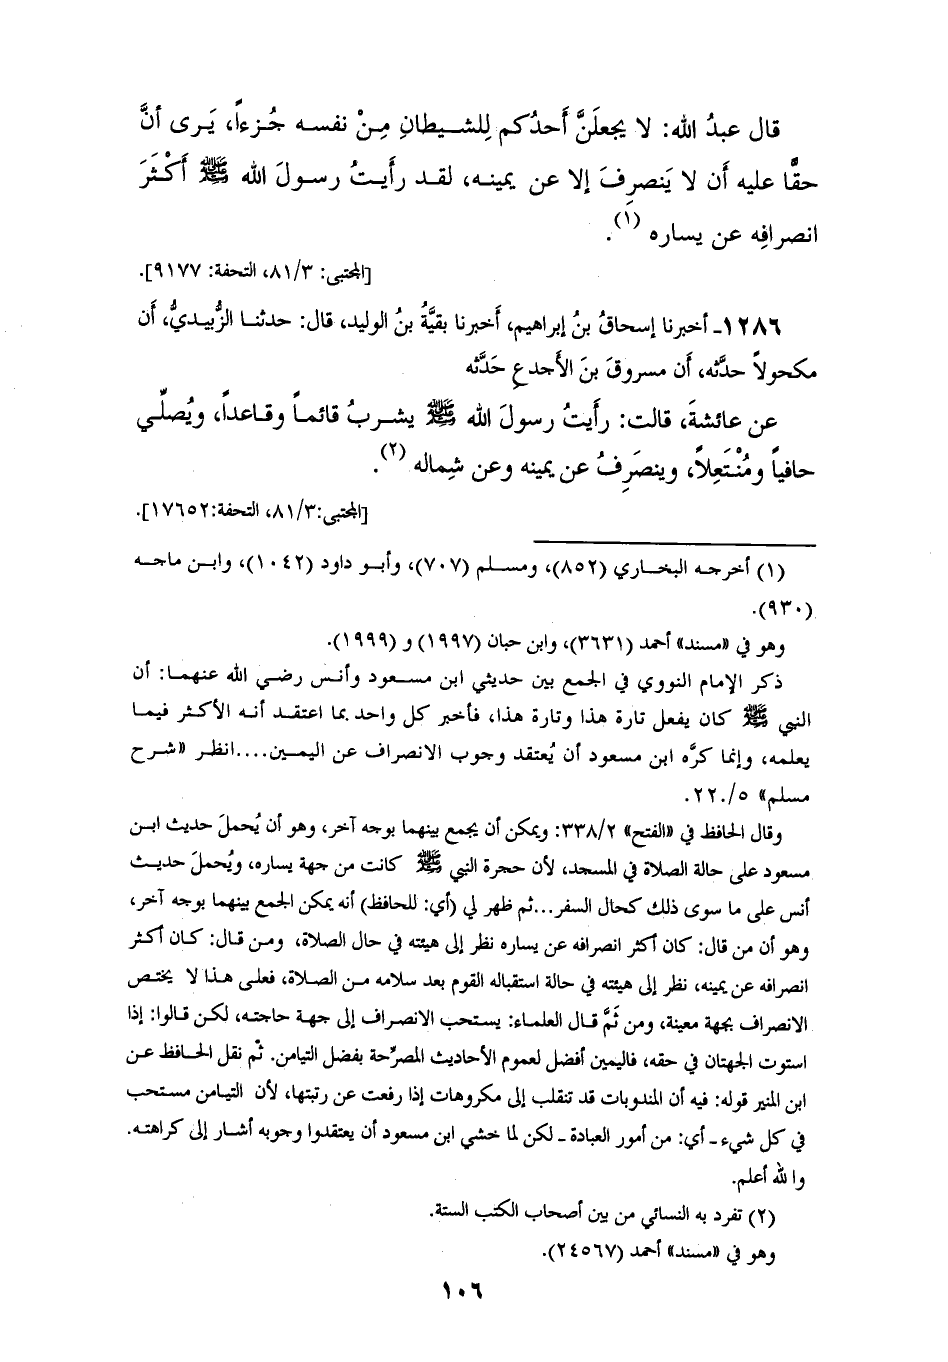 قال عبدُ الله: لا يجعلَنَّ أَحدُكم لِلشيطانِ مِنْ نفسه جُزءاً، يَرى أنَّ
حقًّا عليه أَن لا يَنصرِفَ إلا عن يمينه، لقد رأَيتُ رسولَ الله ﷺ أَكْثَرَ
انصرافِه عن يساره (١).
[المجتبى: ٨١/٣، التحفة: ٩١٧٧].
١٢٨٦ـ أخبرنا إسحاقُ بنُ إبراهيم، أَخبرنا بقيَّةُ بنُ الوليد، قال: حدثنا الزُّبيديُّ، أَن
مكحولاً حدَّثه، أَن مسروقَ بنَ الأَجدعِ حَدَّثه
عن عائشةَ، قالت: رأَيتُ رسولَ الله ﷺ يشربُ قائماً وقاعداً، ويُصلِّي
حافياً ومُنْتَعِلاً، وينصَرِفُ عن يمينه وعن شِماله (٢).
[المجتبى:٨١/٣، التحفة:١٧٦٥٢].
(١) أخرجه البخاري (٨٥٢)، ومسلم (٧٠٧)، وأبو داود (١٠٤٢)، وابن ماجه
(٩٣٠).
وهو في «مسند» أحمد (٣٦٣١)، وابن حبان (١٩٩٧) و (١٩٩٩).
ذكر الإمام النووي في الجمع بين حديثي ابن مسعود وأنس رضي الله عنهما: أن
النبي ﷺ كان يفعل تارة هذا وتارة هذا، فأخبر كل واحد بما اعتقد أنه الأكثر فيما
يعلمه، وإنما كرَّه ابن مسعود أن يُعتقد وجوب الانصراف عن اليمين....انظر «شرح
مسلم» ٥/٢٢٠.
وقال الحافظ في «الفتح» ٣٣٨/٢: ويمكن أن يجمع بينهما بوجه آخر، وهو أن يُحملَ حديث ابن
مسعود على حالة الصلاة في المسجد، لأن حجرة النبي ﷺ كانت من جهة يساره، ويُحملَ حديث
أنس على ما سوى ذلك كحال السفر...ثم ظهر لي (أي: للحافظ) أنه يمكن الجمع بينهما بوجه آخر،
وهو أن من قال: كان أكثر انصرافه عن يساره نظر إلى هيئته في حال الصلاة، ومن قال: كان أكثر
انصرافه عن يمينه، نظر إلى هيئته في حالة استقباله القوم بعد سلامه من الصلاة، فعلى هذا لا يختص
الانصراف بجهة معينة، ومن ثَمَّ قال العلماء: يستحب الانصراف إلى جهة حاجته، لكن قالوا: إذا
استوت الجهتان في حقه، فاليمين أفضل لعموم الأحاديث المصرِّحة بفضل التيامن. ثم نقل الحافظ عن
ابن المنير قوله: فيه أن المندوبات قد تنقلب إلى مكروهات إذا رفعت عن رتبتها، لأن التيامن مستحب
في كل شيء ـ أي: من أمور العبادة ـ لكن لما خشي ابن مسعود أن يعتقدوا وجوبه أشار إلى كراهته.
والله أعلم.
(٢) تفرد به النسائي من بين أصحاب الكتب الستة.
وهو في «مسند» أحمد (٢٤٥٦٧).
١٠٦